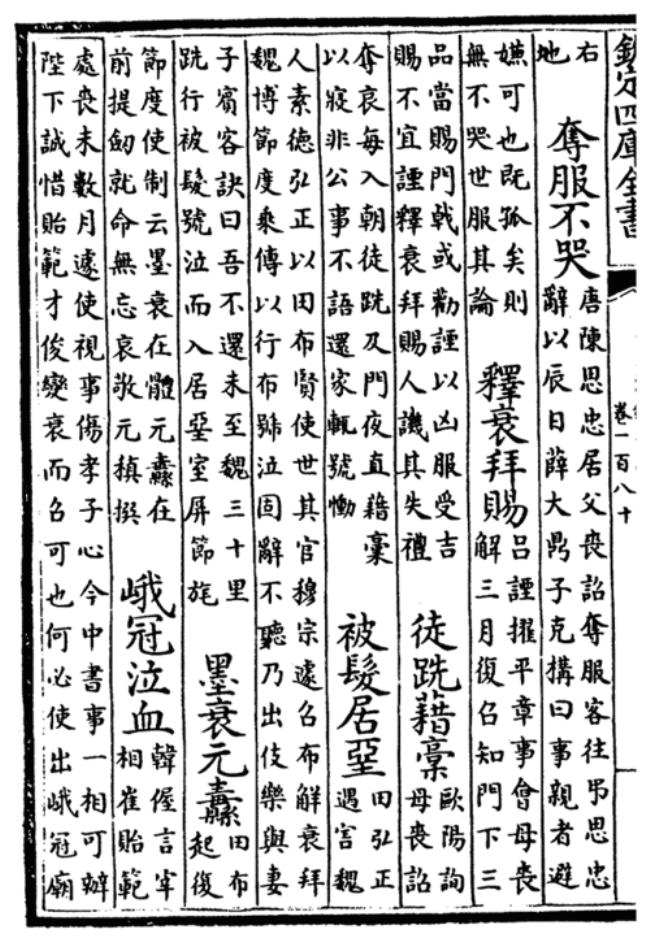 欽定四庫全書
卷一百八十
右
地
奪服不哭
唐陳思忠居父喪詔奪服客往弔思忠
辭以辰日薛大鼎子克構曰事親者避
嫌可也既孤矣則
無不哭世服其論
釋衰拜賜
呂諲擢平章事會母喪
解三月復召知門下三
品當賜門戟或勸諲以凶服受吉
賜不宜諲釋衰拜賜人譏其失禮
徒跣藉槀
歐陽詢
母喪詔
奪哀每入朝徒跣及門夜直藉槀
以寢非公事不語還家輒號慟
被髮居堊
田弘正
遇害魏
人素德弘正以田布賢使世其官穆宗遽召布解衰拜
魏博節度乘傳以行布號泣固辭不聽乃出伎樂與妻
子賓客訣曰吾不還未至魏三十里
跣行被髮號泣而入居堊室屏節旄
墨衰元纛
田布
起復
節度使制云墨衰在體元纛在
前提劒就命無忘哀敬元稹撰
峨冠泣血
韓偓言宰
相崔貽範
處喪未數月遽使視事傷孝子心今中書事一相可辦
陛下誠惜貽範才俊變衰而召可也何必使出峨冠廟